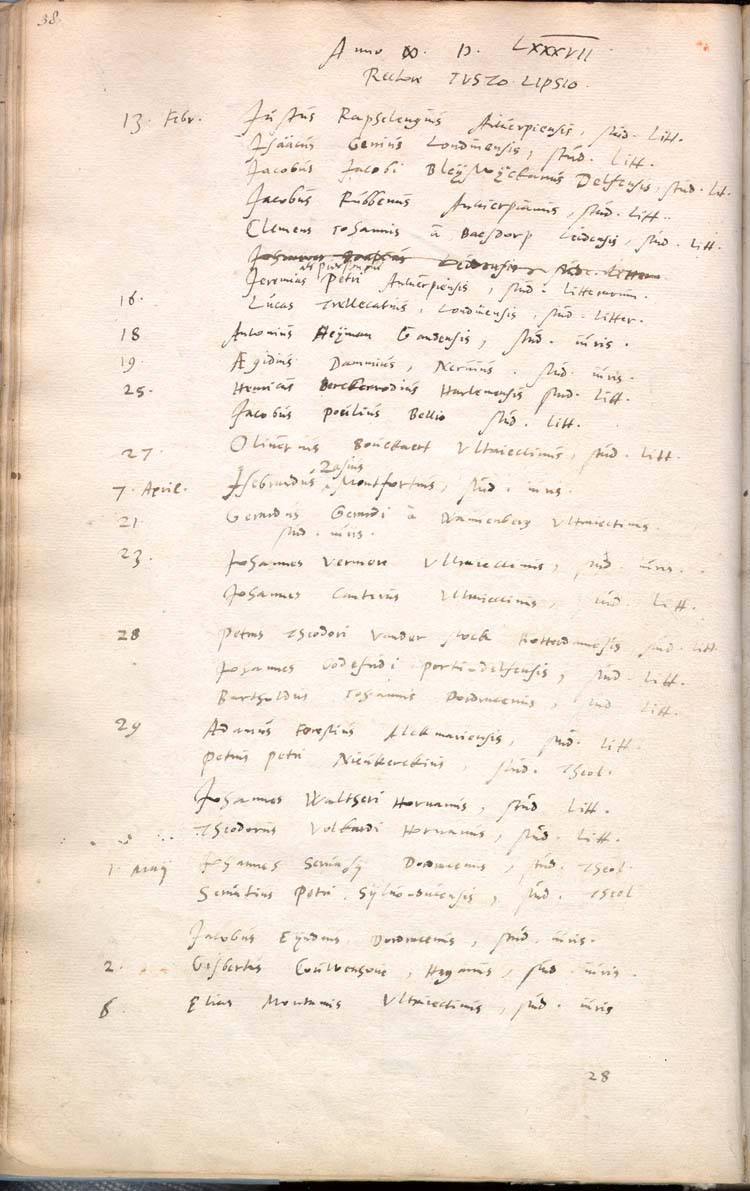 38.
Anno ꝏ. D. LXXXVII
Rectore IUSTO LIPSIO.
13. Febr. Justus Raphelengius Antuerpiensis, stud. litt.
Isaacus Genius Londinensis, stud. litt.
Jacobus Jacobi Bleÿswÿckanus Delfensis, stud. lit.
Jacobus Rubbenus Antuerpianus, stud. litt.
Clemens Johannis à Baesdorp Leidensis, stud. litt.
Johannes Leidensis stud. litterar.
Jeremias Petri Antuerpiensis, stud. litterarum.
16. Lucas Trellecatius, Londinensis, stud. litter.
18 Antonius Heÿman Gandensis, stud. iuris.
19. Ægidius Dammius, stud. iuris.
25. Henricus Berckenrodius Harlemensis stud. litt.
Jacobus pocilius Bellio stud. litt.
27. Oliuerius Bouckaert Vltraiectinus, stud. litt.
Zasius
7. April. Isebrandus à Montfortius, stud. iuris.
21. Gerardus Gerardi à Vltraiectinus.
stud. iuris.
23. Johannes Vermore Vltraiectinus, stud. iuris.
Johannes Canterus Vltraiectinus, stud. litt.
28 Petrus Theodori vander stock Rotterdamensis stud. litt
Johannes Godefridi porti-delfensis, stud. litt.
Bartholdus Johannis Dordracenus, stud litt.
29 Adamus Forestus Alckmariensis, stud. litt.
Petrus petri Nieukerckius, stud. Theol.
Johannes Waltheri Hornanus, stud litt.
Theodorus Volkardi Hornanus, stud. litt.
1. Maij Johannes Seruatij Dordracenus, stud. Theol.
Seruatius Petri Syluo-ducensis, stud. Theol
Jacobus Eÿndius Dordracenus, stud. iuris.
2. Gisbertus Haganus, stud. iuris.
6. Elias Montanus Vltraiectinus, stud. iuris
28